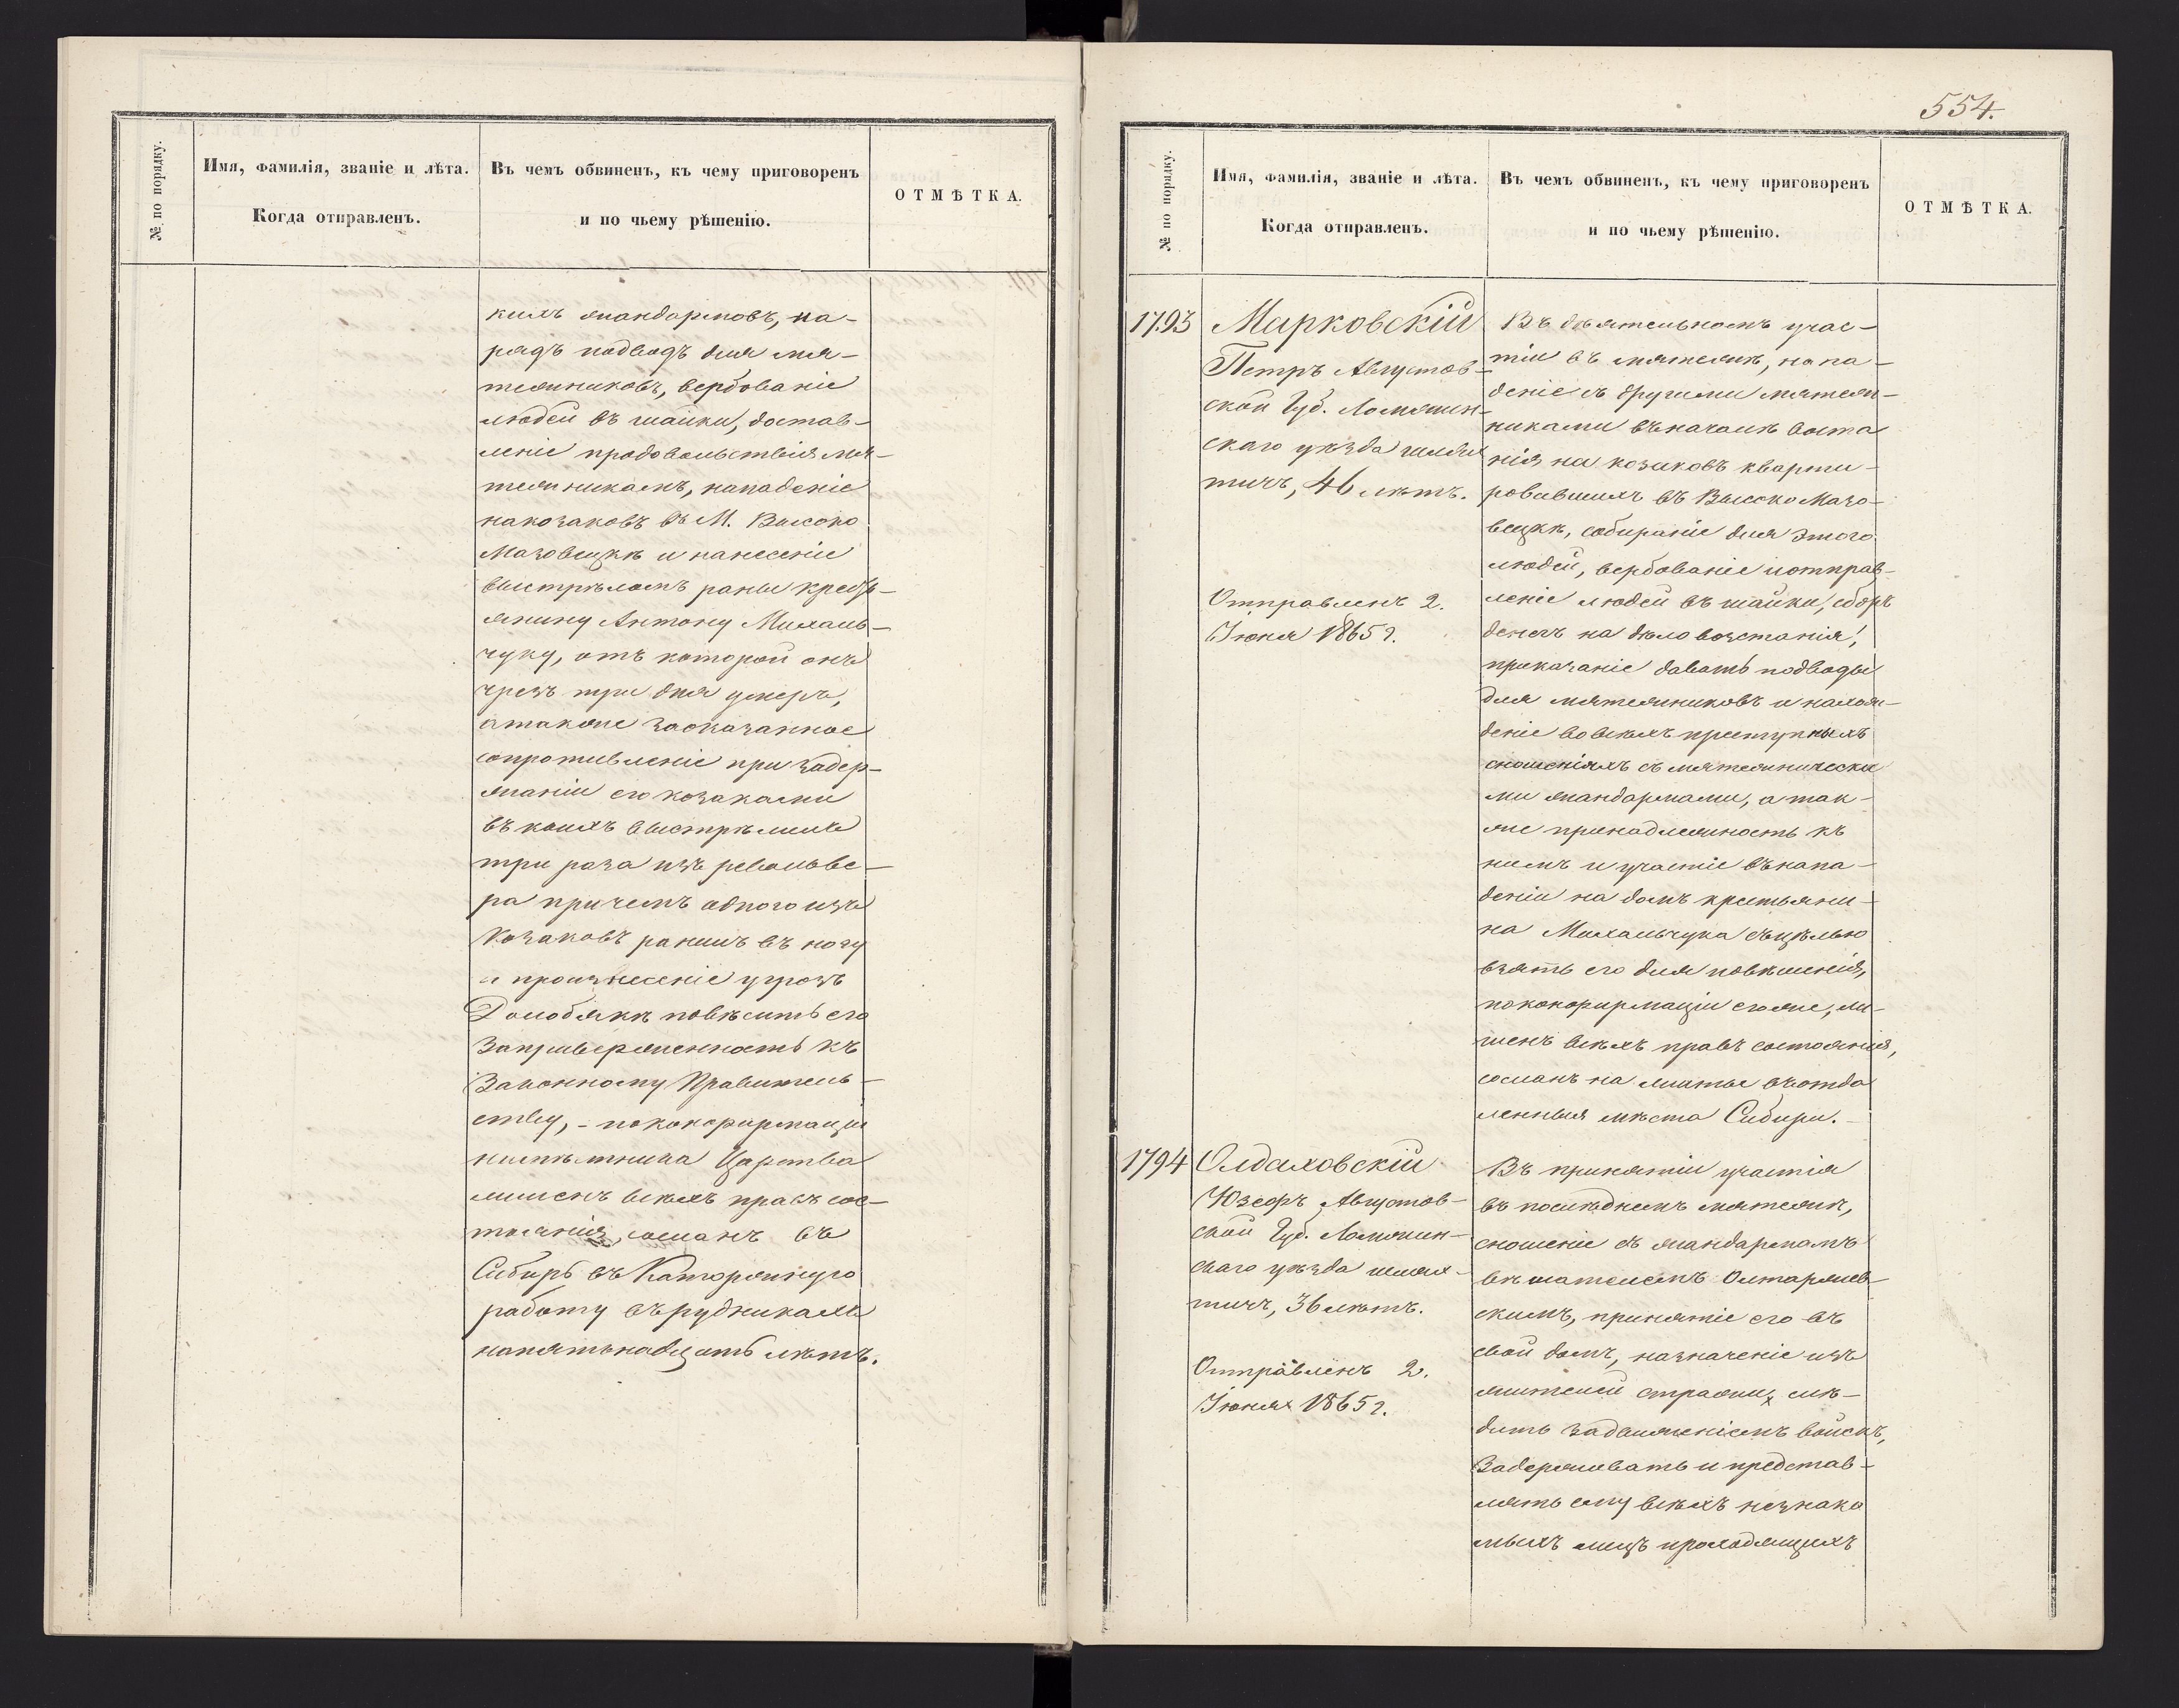 № по порядку.
Имя, фамилія, званіе и лѣта.
Когда отправленъ.
Въ чемъ обвиненъ, къ чему приговоренъ
и по чьему рѣшенію.
ОТМѢТКА.
кихъ жандармовъ, на-
рядъ подводъ для мя-
тежниковъ, вербованіе
людей въ шайки, достав-
леніе продовольствія мя-
тежникамъ, нападеніе
на козаковъ въ М. Высоко
Мазовецкѣ и нанесеніе
выстрѣломъ раны кресть-
янину Антону Михаль-
чуку, отъ которой онъ
чрезъ три дня умеръ,
а также за оказанное
сопротивленіе при задер-
жаніи его козаками
въ коихъ выстрѣлилъ
три раза изъ револьве-
ра причемъ одного изъ
козаковъ ранилъ въ ногу
и произнесеніе угрозъ
повѣсить его
за приверженность къ
Законному Правитель-
ству, - по конфирмаціи
намѣстника Царства
лишенъ всѣхъ правъ сос-
тоянія, сосланъ въ
Сибирь въ Каторжную
работу въ рудникахъ
на пятьнадцать лѣтъ.
554.
№ по порядку.
Имя, фамилія, званіе и лѣта.
Когда отправленъ.
Въ чемъ обвиненъ, къ чему приговоренъ
и по чьему рѣшенію.
ОТМѢТКА.
1793
Марковскій
Петръ Августов-
ской Губ. Ломжин-
скаго уѣзда шлях
тичъ, 46 лѣтъ.
Отправленъ 2.
Іюня 1865 г.
Въ дѣятельномъ учас-
тіи въ мятежѣ, напа-
деніе съ другими мятеж-
никами въ началѣ воста
нія на козаковъ кварти-
ровавшихъ въ Высоко Мазо-
вецкѣ, собираніе для этого
людей, вербованіе и отправ-
леніе людей въ шайки, сборъ
денегъ на дѣло возстанія,
приказаніе давать подводы
для мятежниковъ и нахож-
деніе во всѣхъ преступныхъ
сношеніяхъ съ мятежнически
ми жандармами, а так-
же принадлежность къ
нимъ и участіе въ напа-
деніи на домъ крестьяни-
на Михальчука съ цѣлью
взять его для повѣшенія,
по конфирмаціи его же, ли-
шенъ всѣхъ правъ состоянія,
сосланъ на житье въ отда
ленныя мѣста Сибири.
1794
Олдаховскій
Юзефъ Августов-
ской Губ. Ломжин-
скаго уѣзда шлях-
тичъ, 36 лѣтъ.
Отправленъ 2.
Іюня 1865 г.
Въ принятіи участія
въ послѣднемъ мятежѣ,
сношеніе съ жандармомъ
вѣшателемъ Олтаржев-
скимъ, принятіе его въ
свой домъ, назначеніе изъ
жителей стражи, слѣ-
дить за движеніемъ войскъ,
Задерживать и представ-
лять ему всѣхъ незнако
мыхъ лицъ проходящихъ